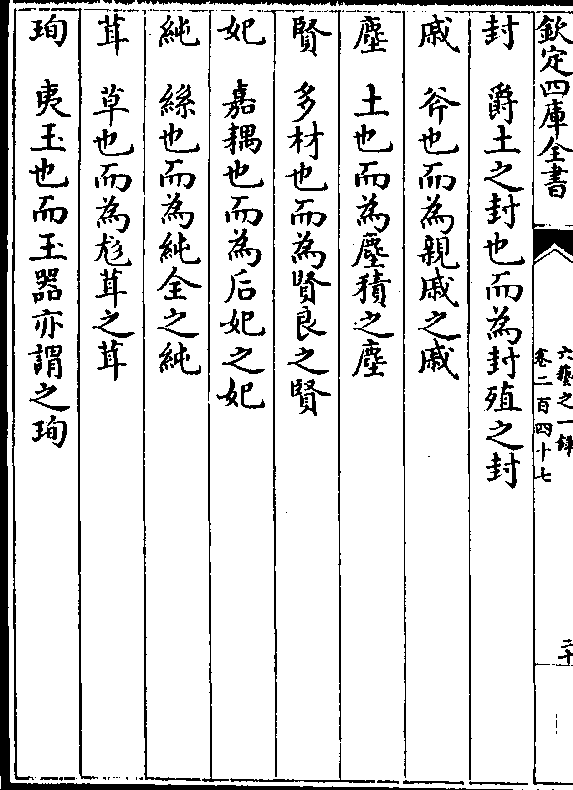 欽定四庫全書
六藝之一錄
卷二百四十七
二十
封　爵土之封也而為封殖之封
戚　斧也而為親戚之戚
塵　土也而為塵積之塵
賢　多材也而為賢良之賢
妃　嘉耦也而為后妃之妃
純　絲也而為純全之純
茸　草也而為尨茸之茸
珣　夷玉也而玉器亦謂之珣